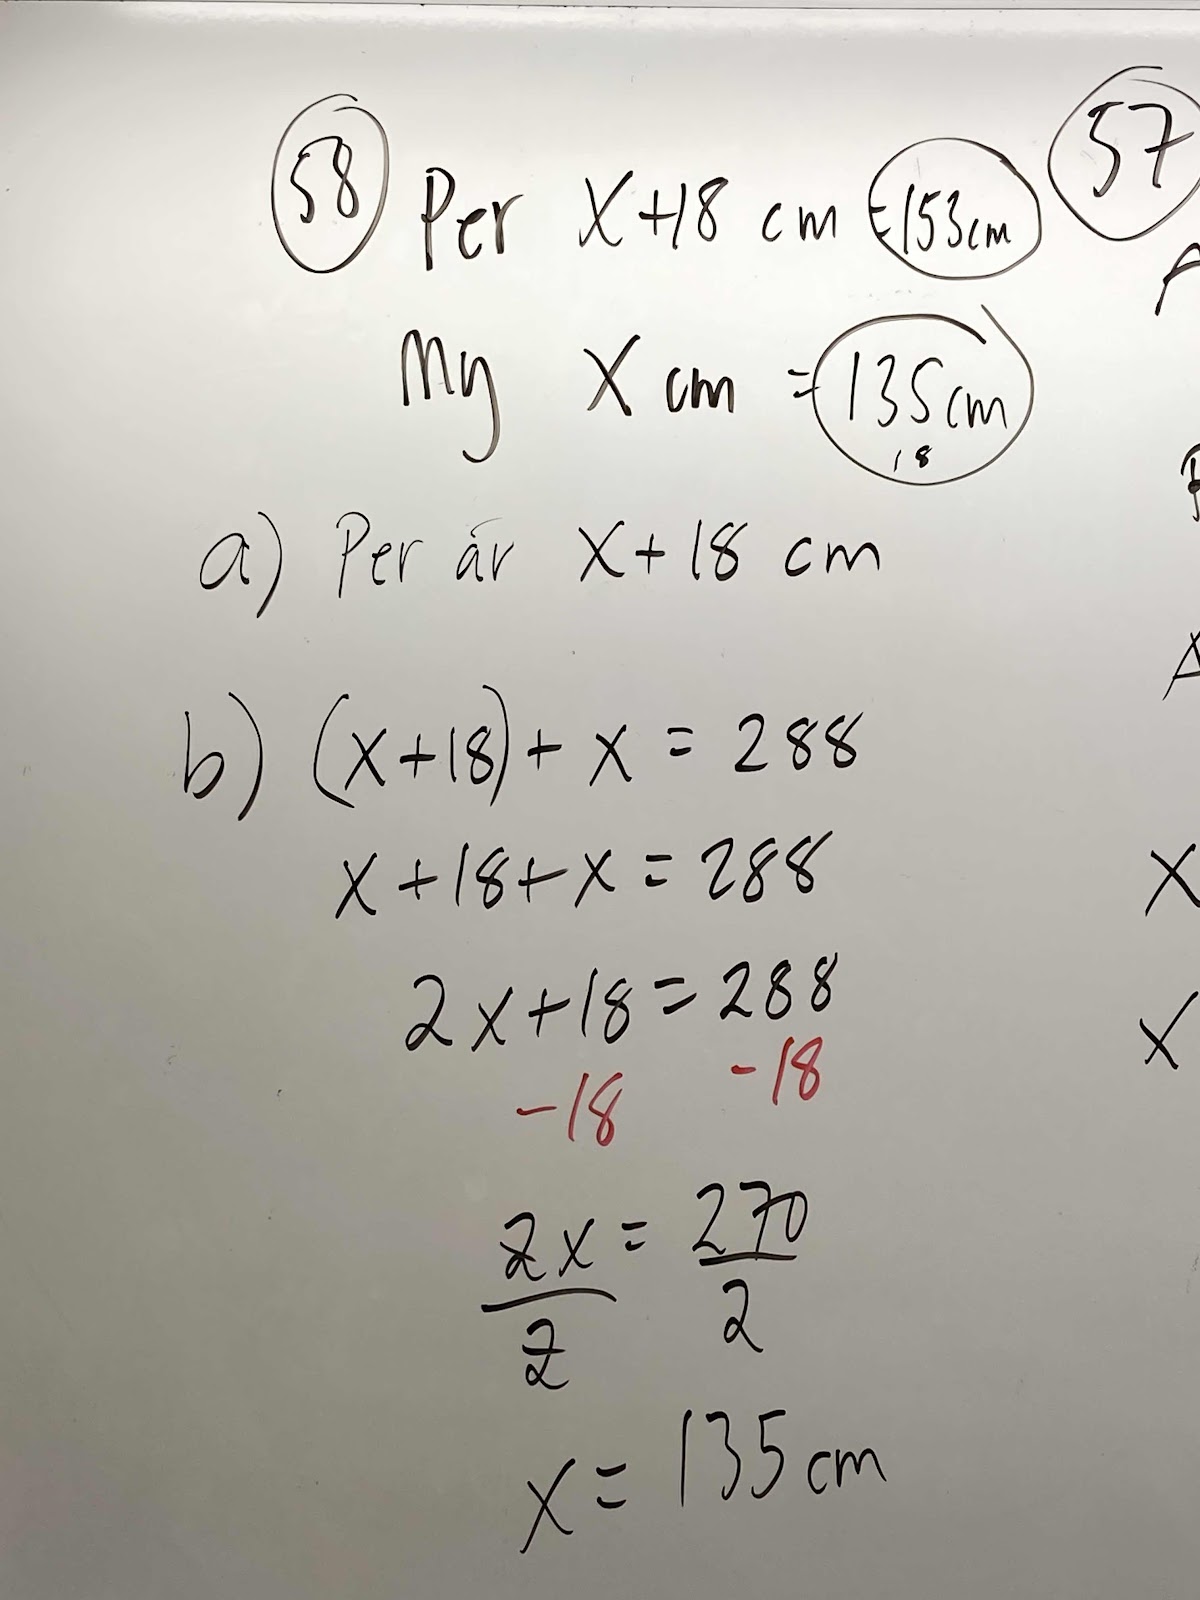 58 Per x+18 cm =153cm
My x cm =135cm
18
a) Per är x+18 cm
b) (x+18)+x = 288
x+18+x = 288
2x+18=288
-18 -18
2x = 270
2 2
x = 135 cm
57
A
x
x